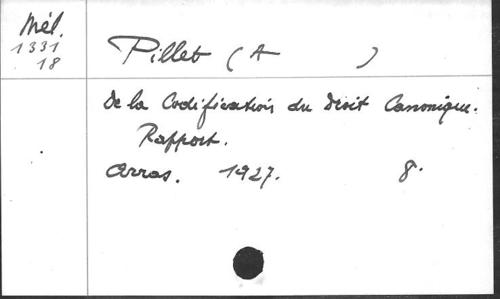 Mél.
1331
18
Pillet (A )
De la Codification du Droit Canonique.
Rapport.
Arras. 1927. 8°